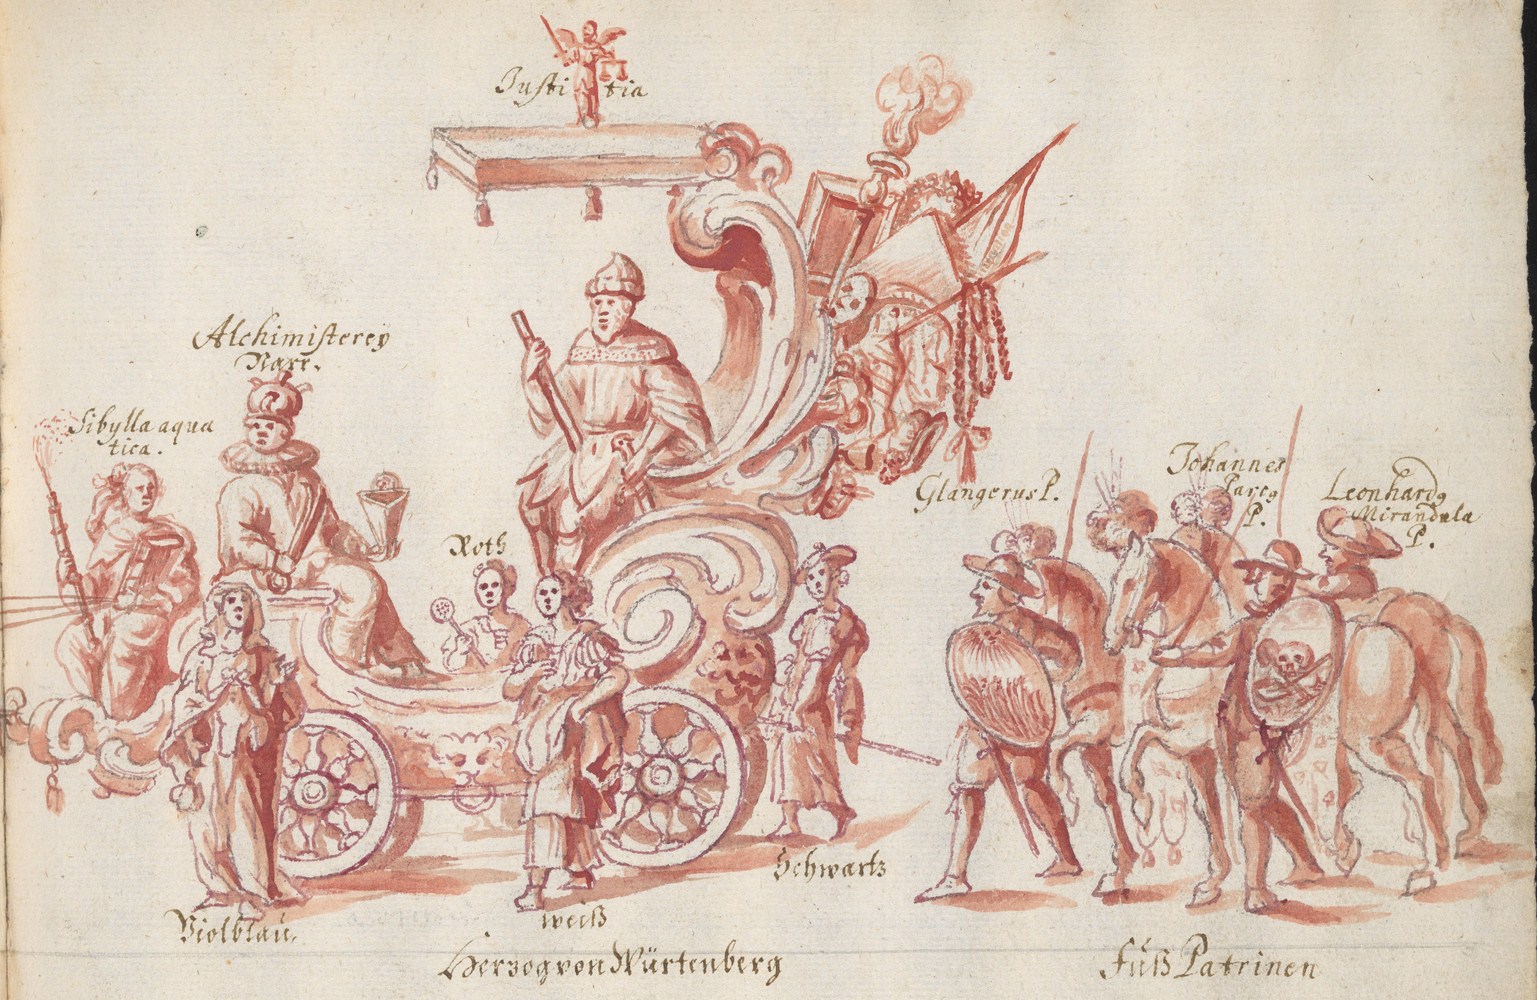 Justitia
Alchimisterey
Narr.
Sibylla aqua
tica.
Roth
Glangerus P.
Johannes
Parcq
P.
Leonhardq
Mirandula
P.
Schwartz
Violblau.
weiß
Herzog von Würtenberg
fúnf Patrinen